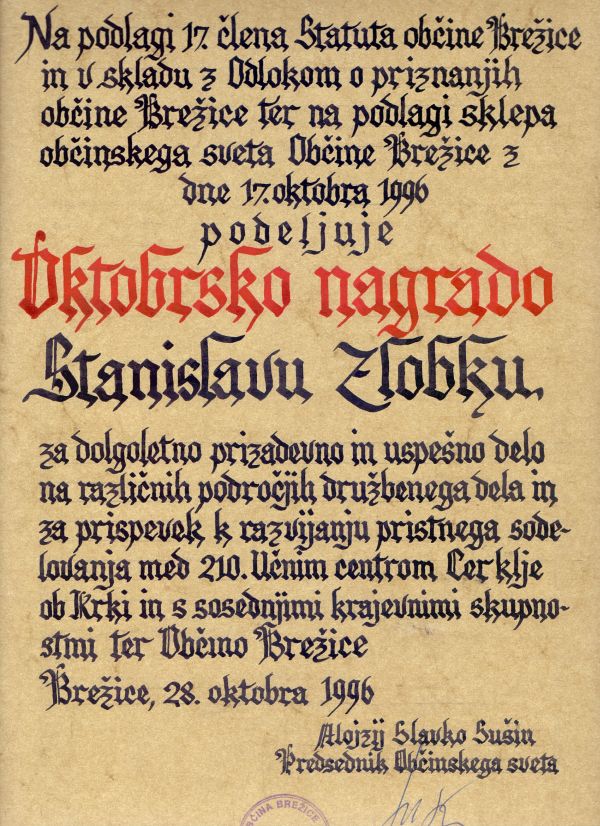 Na podlagi 17. člena Statuta občine Brežice
in v skladu z Odlokom o priznanjih
občine Brežice ter na podlagi sklepa
občinskega sveta Občine Brežice z
dne 17. oktobra 1996
podeljuje
Oktobrsko nagrado
Stanislavu Zlobku,
za dolgoletno prizadevno in uspešno delo
na različnih področjih družbenega dela in
za prispevek k razvijanju pristnega sode-
lovanja med 210. Učnim centrom Cerklje
ob Krki in s sosednjimi krajevnimi skupno-
stmi ter Občino Brežice
Brežice, 28. oktobra 1996
Alojzij Slavko Sušin
Predsednik Občinskega sveta
OBČINA BREŽICE